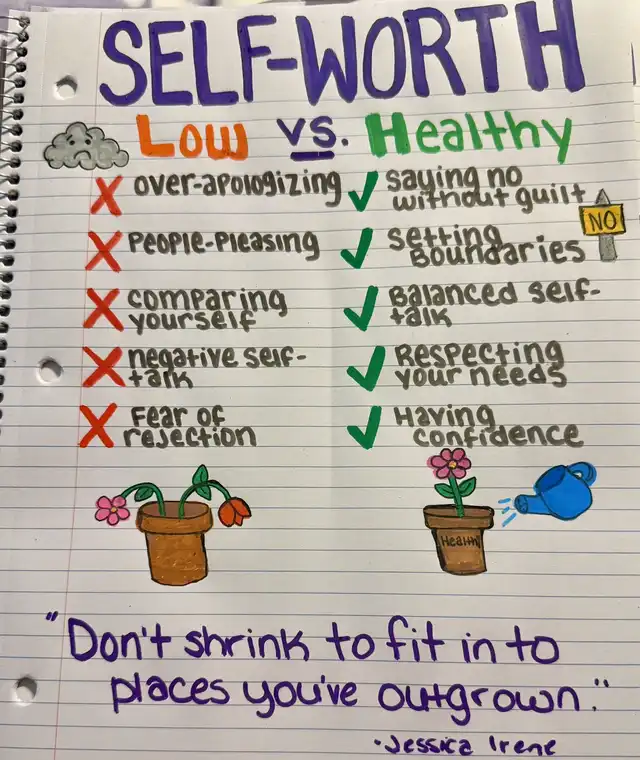 SELF-WORTH
Low vs. Healthy
over-apologizing
People-Pleasing
comparing
yourself
negative self-
talk
Fear of
rejection
saying no
without guilt
NO
Setting
Boundaries
Balanced self-
talk
Respecting
your needs
Having
confidence
Health
"Don't shrink to fit in to
places you've outgrown."
·Jessica Irene